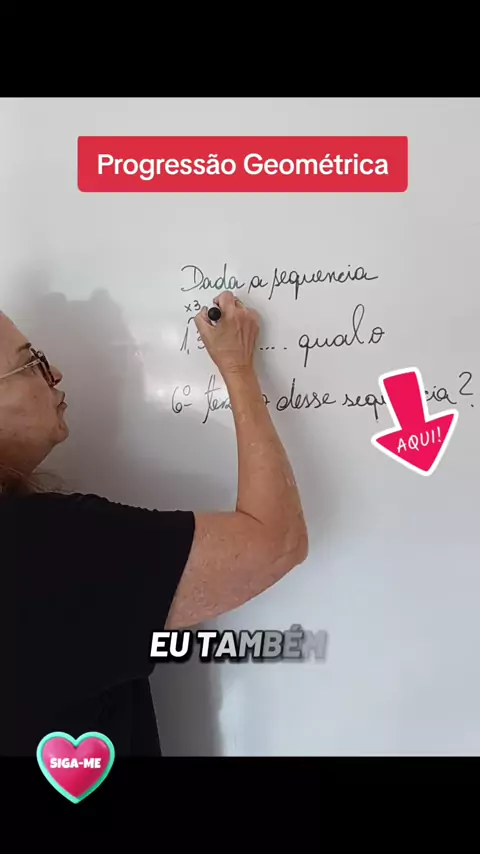 Progressão Geométrica
Dada a sequencia
x3
1, 3 .... qual o
6º desse
AQUI!
EU TAMBÉM
SIGA-ME